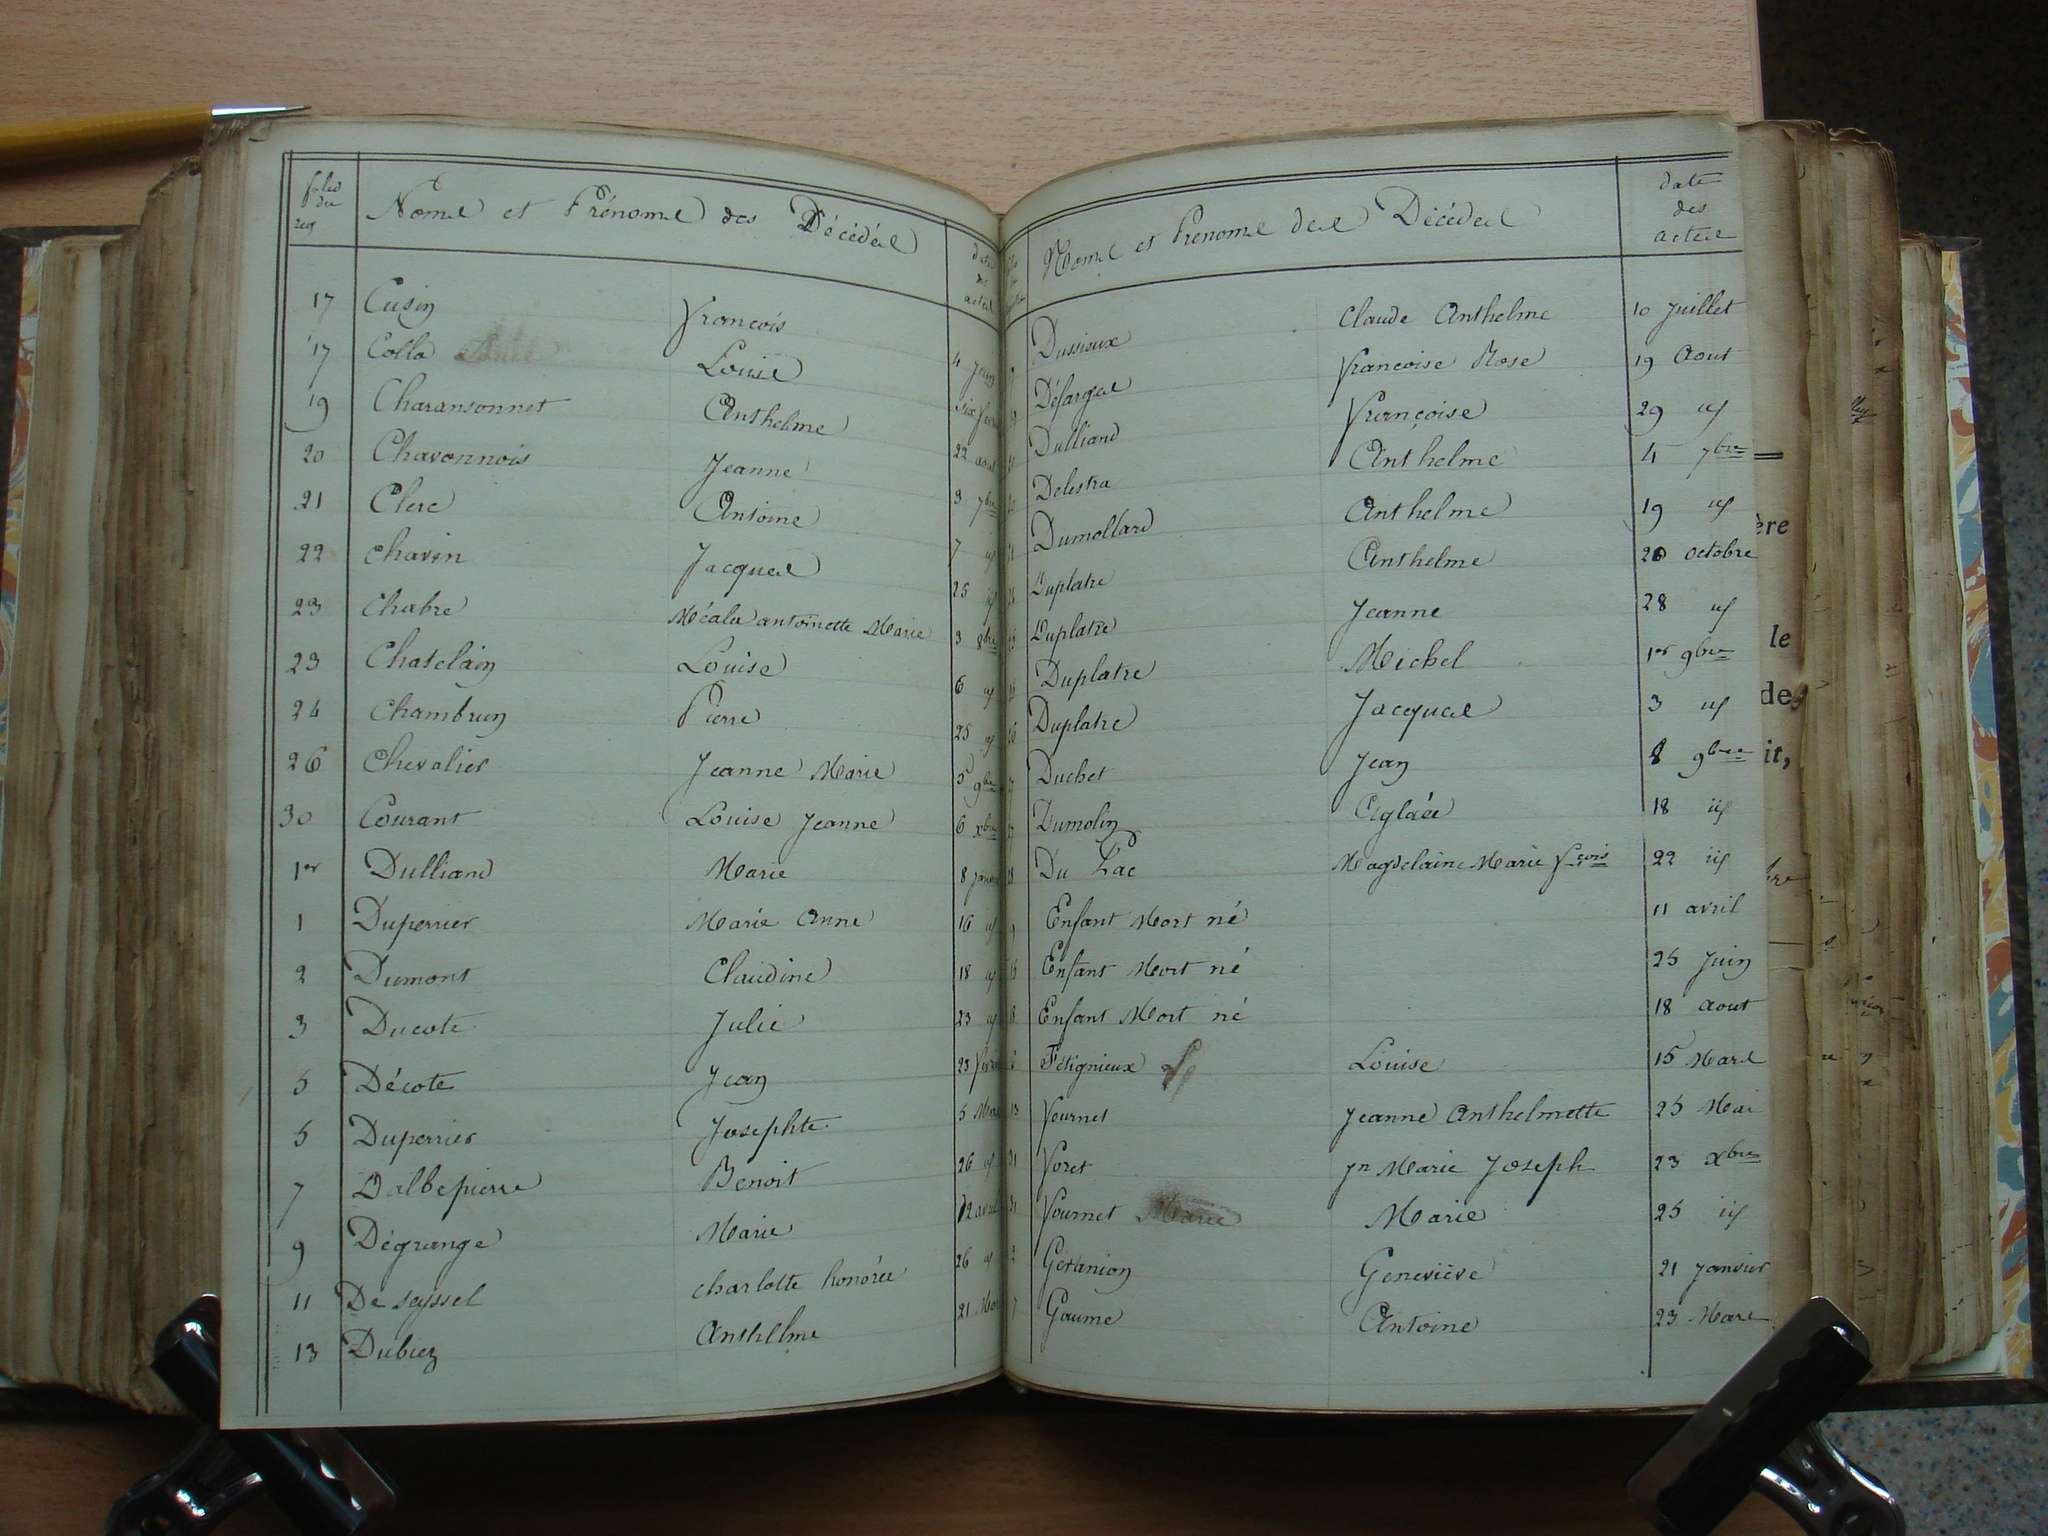 folio du reg
Noms et Prénoms des Décédés
date des actes
17 Cusin François 4 Juin
17 Colla Louise
19 Charansonnet Anthelme 22 aout
20 Chavonnois Jeanne 3 7bre
21 Clerc Antoine 7 id
22 Chavin Jacques 25 id
23 Chabre Antoinette Marie 3 8bre
23 Chatelain Louise 6 id
24 Chambrun Pierre 25 id
26 Chevalier Jeanne Marie 5 9bre
30 Courant Louise Jeanne 6 xbre
1er Dulliand Marie 8
1 Duperrier Marie Anne 16 id
2 Dumont Claudine 18 id
3 Ducote Julie 23 id
5 Décote Jean 23
5 Duperrier Josephte 5
7 Dalbepierre Benoit 26 id
9 Dégrange Marie 12 avril
11 De seyssel charlotte honorée 26 id
13 Dubiez Anthelme 21
Noms et Prenoms des Décédés
date des actes
Dussieux Claude Anthelme 10 Juillet
Désarges Francoise Rose 19 Aout
Dulliand Françoise 29 id
Delestra Anthelme 4 7bre
Dumollard Anthelme 19 id
Duplatre Anthelme 20 octobre
Duplatre Jeanne 28 id
Duplatre Michel 1er 9bre
Duplatre Jacques 3 id
Duchet Jean 8 9bre
Dumolin Aglaée 18 id
Du Lac Magdelaine Marie Fçois 22 id
Enfant Mort né 11 avril
Enfant Mort né 25 Juin
Enfant Mort né 18 aout
Fétignieux Louise 15 Mars
13 Fournet Jeanne Anthelmette 25 Mai
31 Foret Jn Marie Joseph 23 xbre
31 Fournet Marie Marie 25 id
2 Geranion Geneviève 21 Janvier
7 Gaume Antoine 23 Mars
ère
le
des
it,